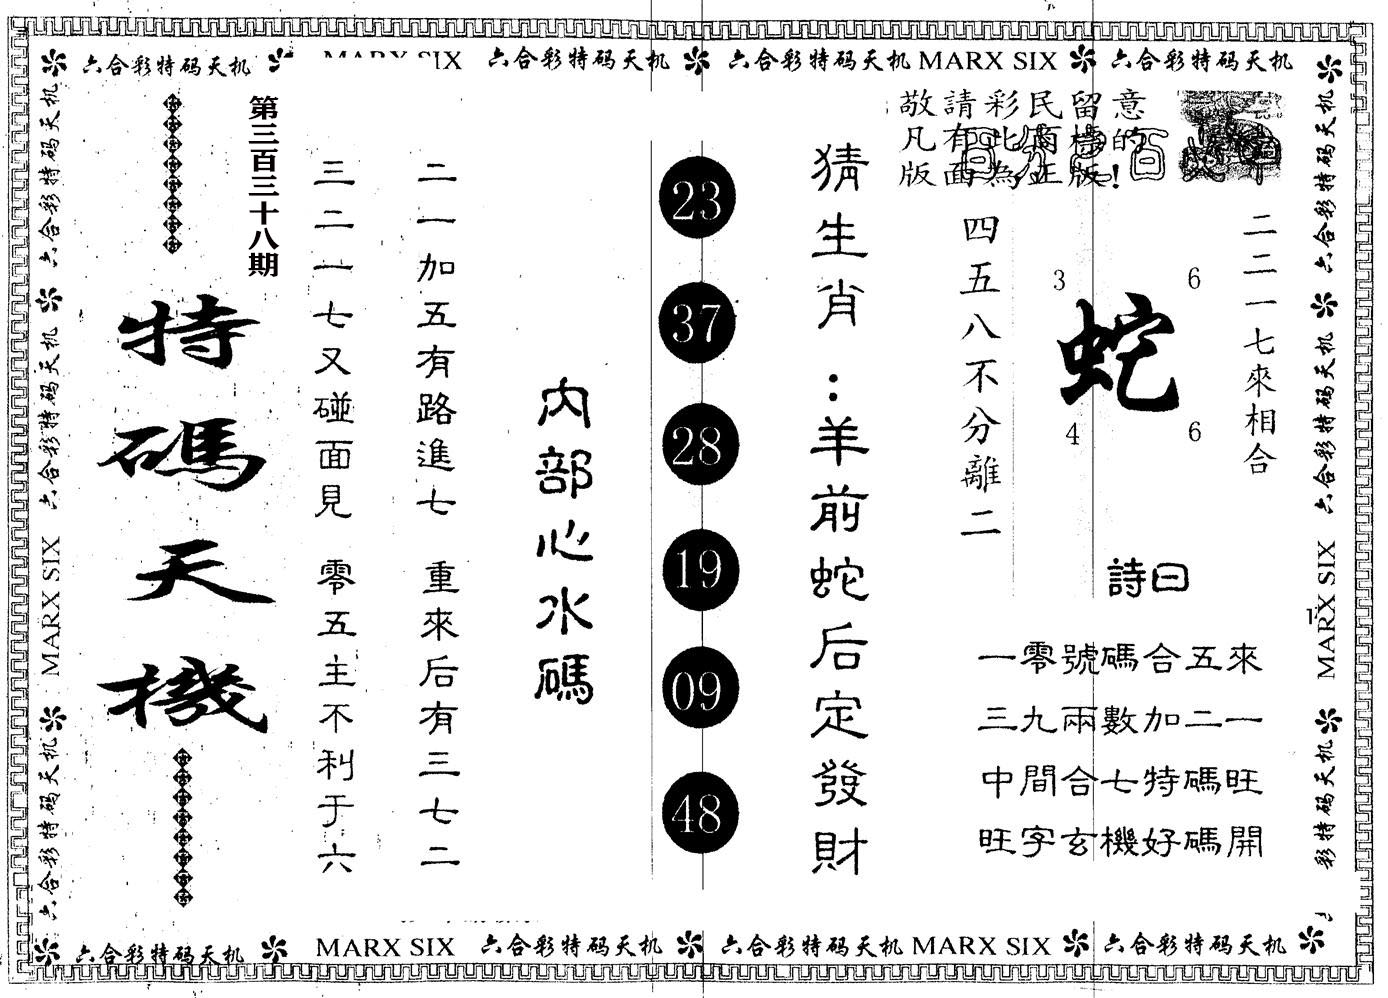 六合彩特码天机 MARX SIX 六合彩特码天机 六合彩特码天机 MARX SIX 六合彩特码天机
敬請彩民留意
凡有此商標的
版面為正版!
二二一七來相合
3 6
蛇
4 6
四五八不分離二
詩曰
一零號碼合五來
三九兩數加二一
中間合七特碼旺
旺字玄機好碼開
猜生肖:羊前蛇后定發財
23
37
28
19
09
48
內部心水碼
二一加五有路進七 重來后有三七二
三二一七又碰面見 零五主不利于六
第三百三十八期
特碼天機
六合彩特码天机 六合彩特码天机 MARX SIX 六合彩特码天机
六合彩特码天机 六合彩特码天机 MARX SIX 彩特码天机
六合彩特码天机 MARX SIX 六合彩特码天机 六合彩特码天机 MARX SIX 六合彩特码天机